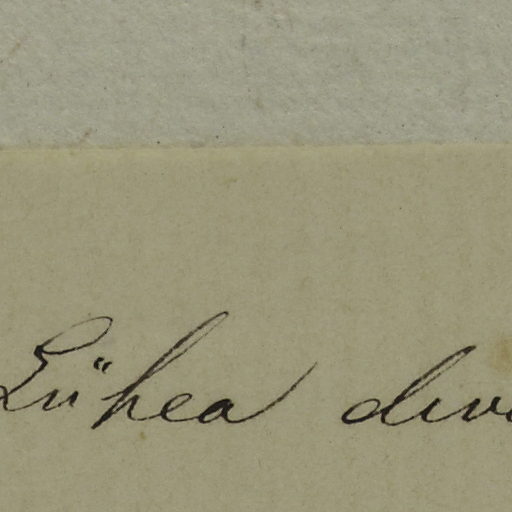 Lühea diva